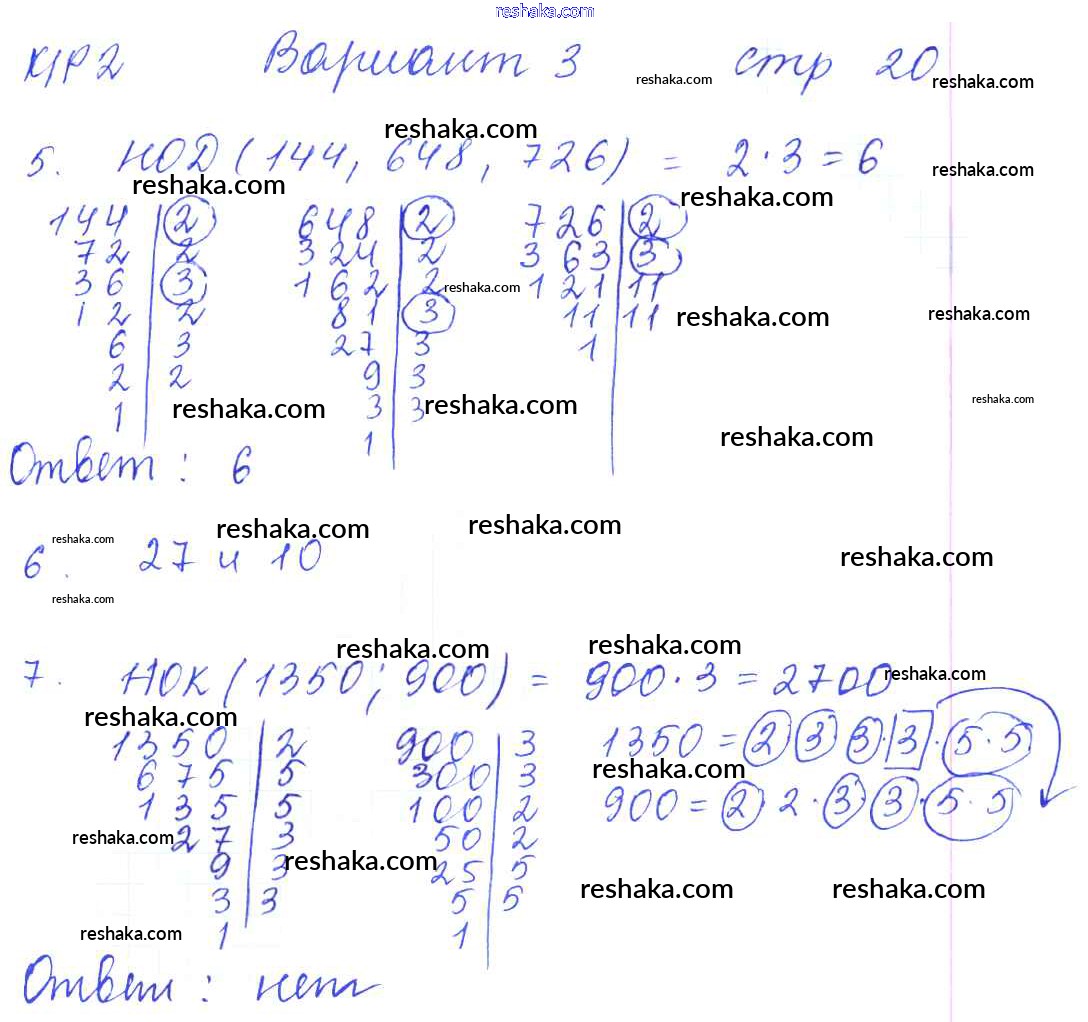 reshaka.com
К/Р 2 Вариант 3 стр 20
reshaka.com reshaka.com
reshaka.com
5. НОД (144, 648, 726) = 2·3=6
reshaka.com reshaka.com reshaka.com
144 | 2 648 | 2 726 | 2
72 | 2 324 | 2 363 | 3
36 | 3 162 | 2 reshaka.com 121 | 11
12 | 2 81 | 3 11 | 11 reshaka.com reshaka.com
6 | 3 27 | 3 1
2 | 2 9 | 3
1 reshaka.com 3 | 3 reshaka.com reshaka.com
1 reshaka.com
Ответ: 6
reshaka.com reshaka.com reshaka.com
6. 27 и 10 reshaka.com
reshaka.com
reshaka.com reshaka.com
7. НОК (1350; 900) = 900·3=2700 reshaka.com
reshaka.com
1350 | 2 900 | 3 1350 = 2 3 3·3·5·5
675 | 5 300 | 3 reshaka.com
135 | 5 100 | 2 900 = 2·2·3 3·5·5
reshaka.com 27 | 3 50 | 2
9 | 3 reshaka.com 25 | 5
3 | 3 5 | 5 reshaka.com reshaka.com
reshaka.com 1 1
Ответ: нет